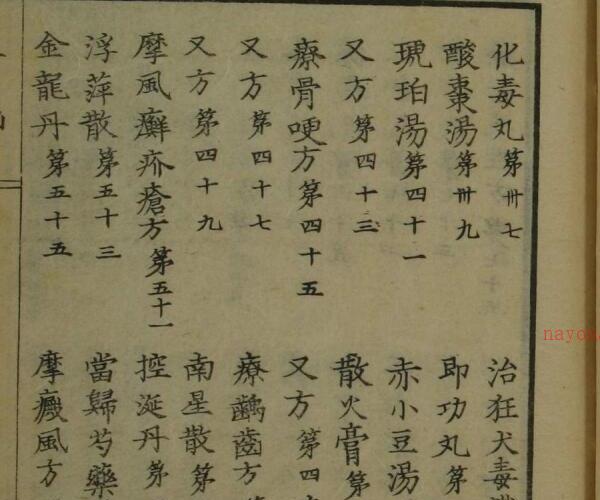 化毒丸第卅七
治狂犬毒
酸棗湯第卅九
即功丸第
琥珀湯第四十一
赤小豆湯
又方第四十三
散火膏第
療骨哽方第四十五
又方第四
又方第四十七
療齲齒方
又方第四十九
南星散第
摩風癬疥瘡方第五十一
控涎丹第
浮萍散第五十三
當歸芍藥
金龍丹第五十五
摩癜風方